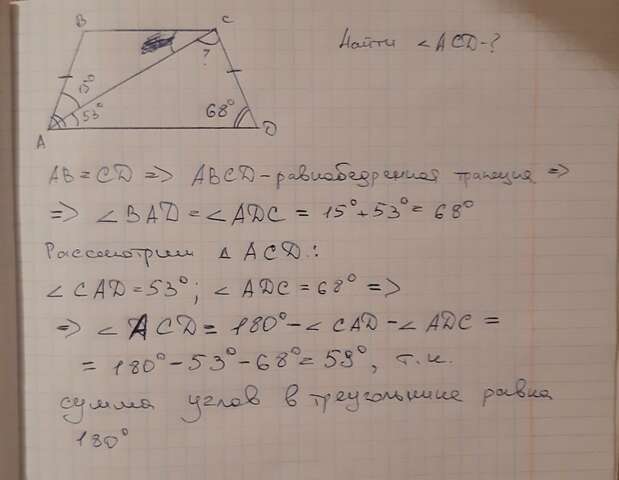 B
C
Найти ∠ACD-?
?
15°
53°
68°
A
D
AB = CD => ABCD - равнобедренная трапеция =>
=> ∠BAD = ∠ADC = 15° + 53° = 68°
Рассмотрим △ ACD:
∠CAD = 53°; ∠ADC = 68° =>
=> ∠ACD = 180° - ∠CAD - ∠ADC =
= 180° - 53° - 68° = 59°, т.к.
сумма углов в треугольнике равна
180°